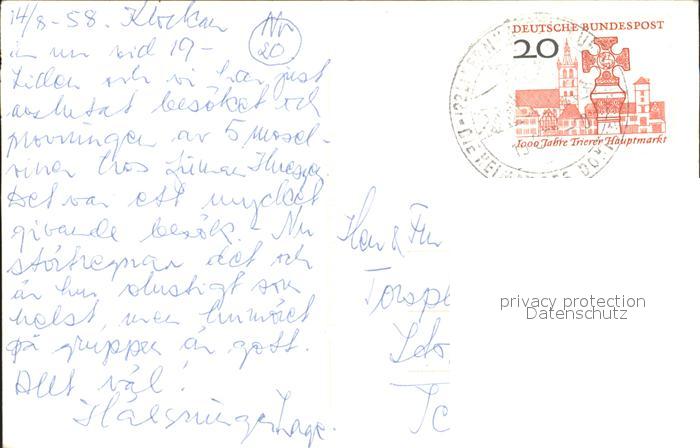 14/8-58. Klockan
är nu vid 19-
tiden och vi har just
avslutat besöket och
provningen av 5 mosel-
viner hos
Det var ett mycket
givande besök. Nu
störtregnar det och
är hur olustigt som
helst, men humöret
på gruppen är gott.
Allt väl!
Hälsningar
Nr
20
DEUTSCHE BUNDESPOST
20
1000 Jahre Trierer Hauptmarkt
Herr & Fru
privacy protection
Datenschutz